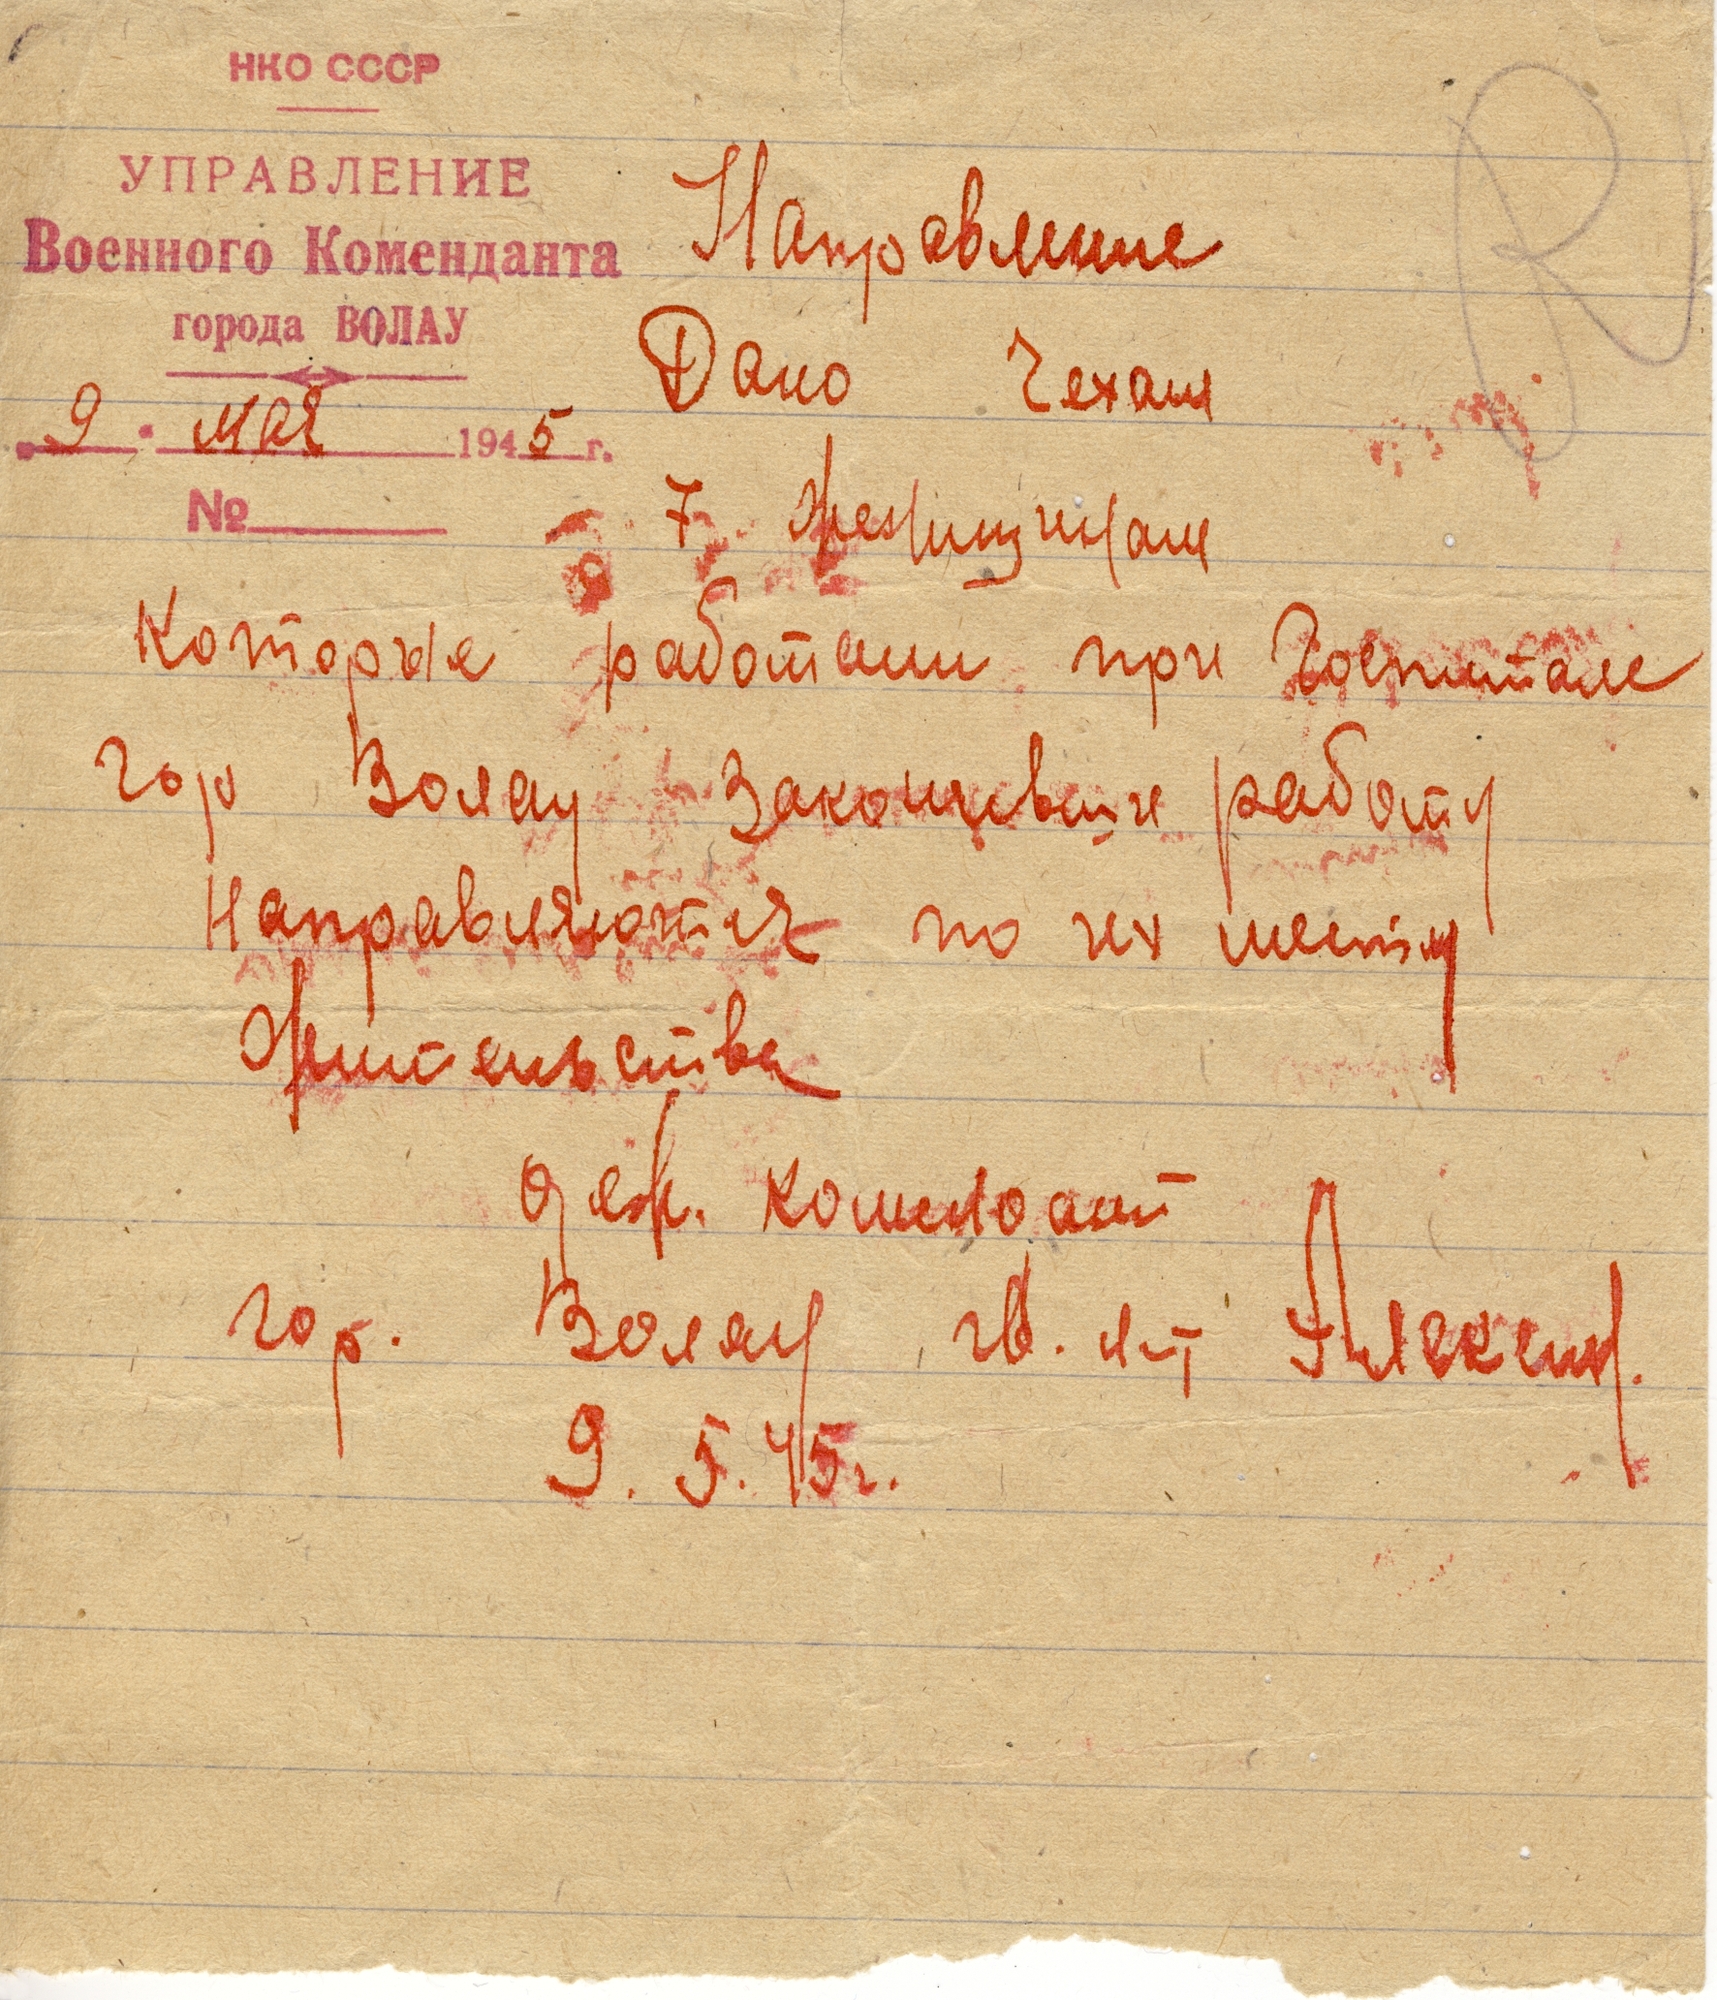 НКО СССР
УПРАВЛЕНИЕ
Военного Коменданта
города ВОЛАУ
9 мая 1945 г.
№
Направление
Дано Чехам
7 женщинам
Которые работали при Госпитале
гор Волау Закончевши работу
Направляются по их месту
Жительства
Деж. комендант
гор. Волау гв. л-т
9. 5. 45 г.
R